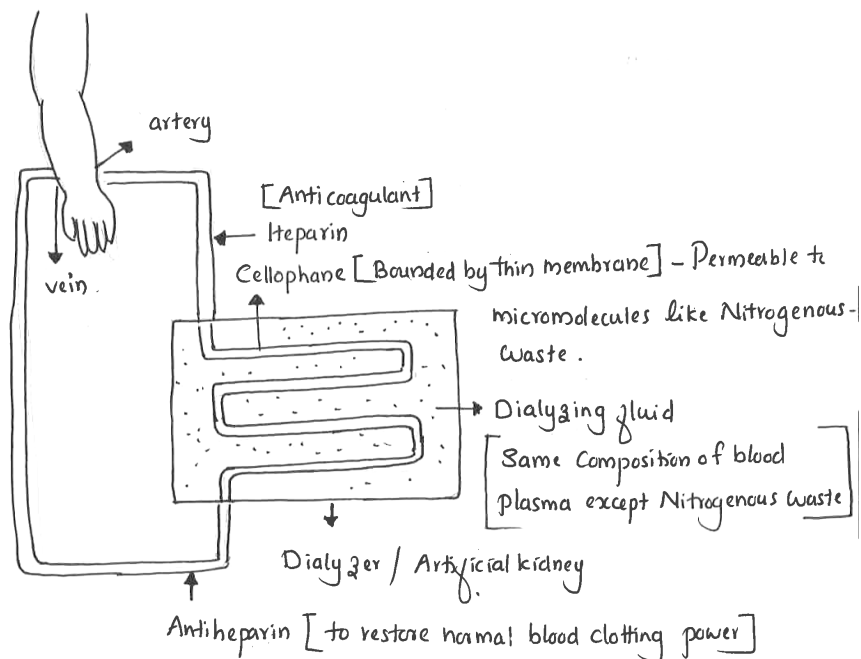 artery
[Anticoagulant]
Heparin
vein.
Cellophane [Bounded by thin membrane] - Permeable to
micromolecules like Nitrogenous-
waste.
Dialyzing fluid
[Same composition of blood
plasma except Nitrogenous waste]
Dialyzer / Artificial kidney
Antiheparin [to restore normal blood clotting power]